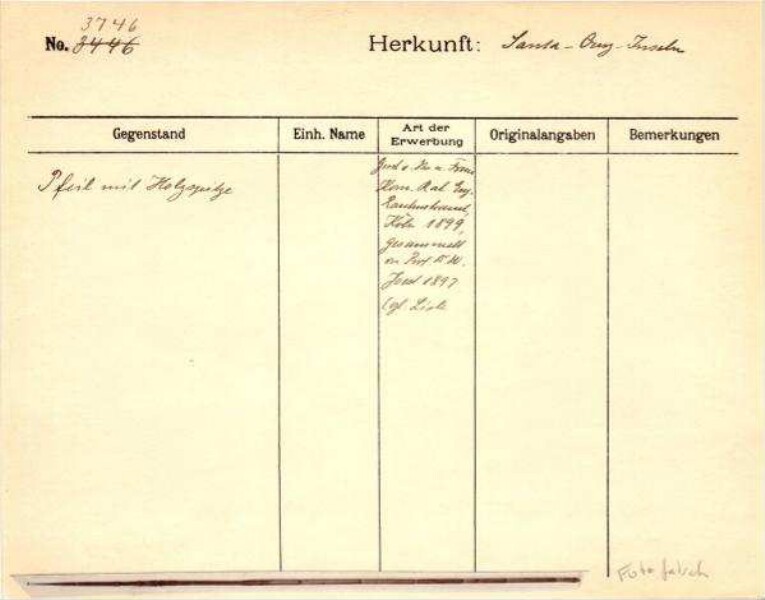 3746
No. 3446 Herkunft: Santa-Cruz-Inseln
Gegenstand Einh. Name Art der Erwerbung Originalangaben Bemerkungen
Pfeil mit Holzspitze
Kom. Rat Eug.
Köln 1899,
gesammelt
Prof. W.
Joest 1897
Cgl. Liste
Foto falsch